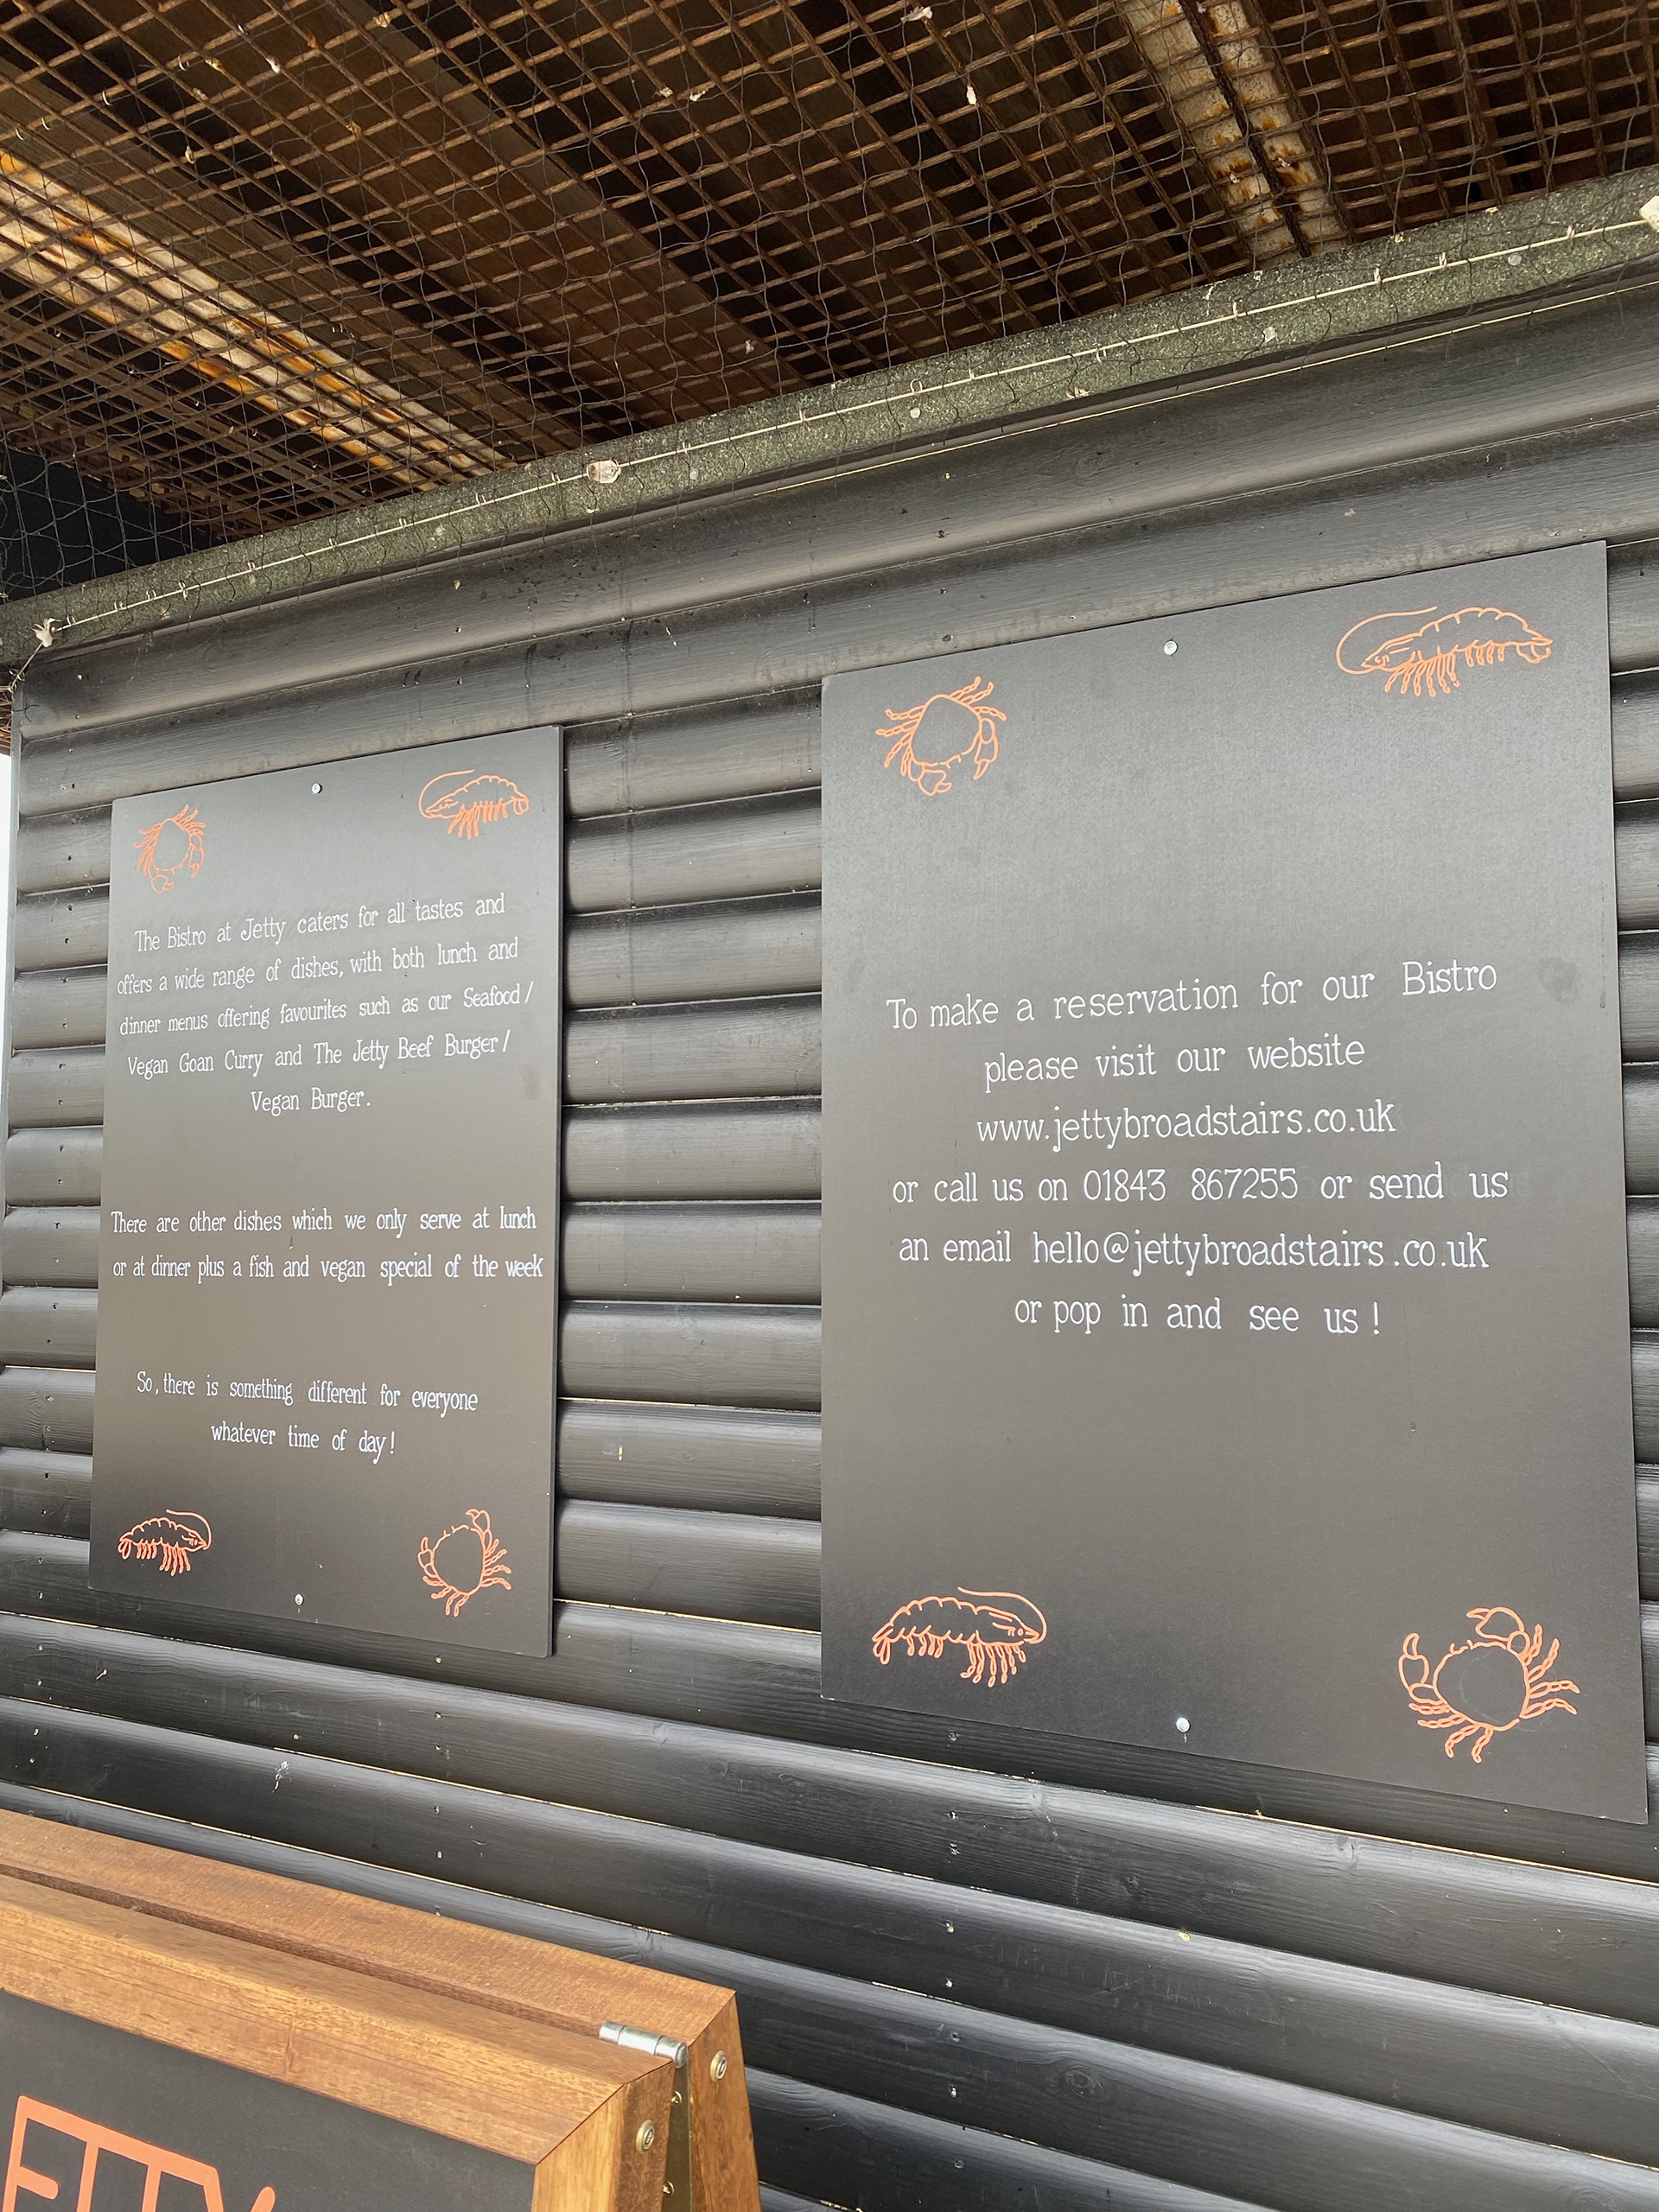 The Bistro at Jetty caters for all tastes and
offers a wide range of dishes, with both lunch and
dinner menus offering favourites such as our Seafood/
Vegan Goan Curry and The Jetty Beef Burger/
Vegan Burger.
There are other dishes which we only serve at lunch
or at dinner plus a fish and vegan special of the week
So, there is something different for everyone
whatever time of day!
To make a reservation for our Bistro
please visit our website
www.jettybroadstairs.co.uk
or call us on 01843 867255 or send us
an email hello@jettybroadstairs.co.uk
or pop in and see us!
ETTY